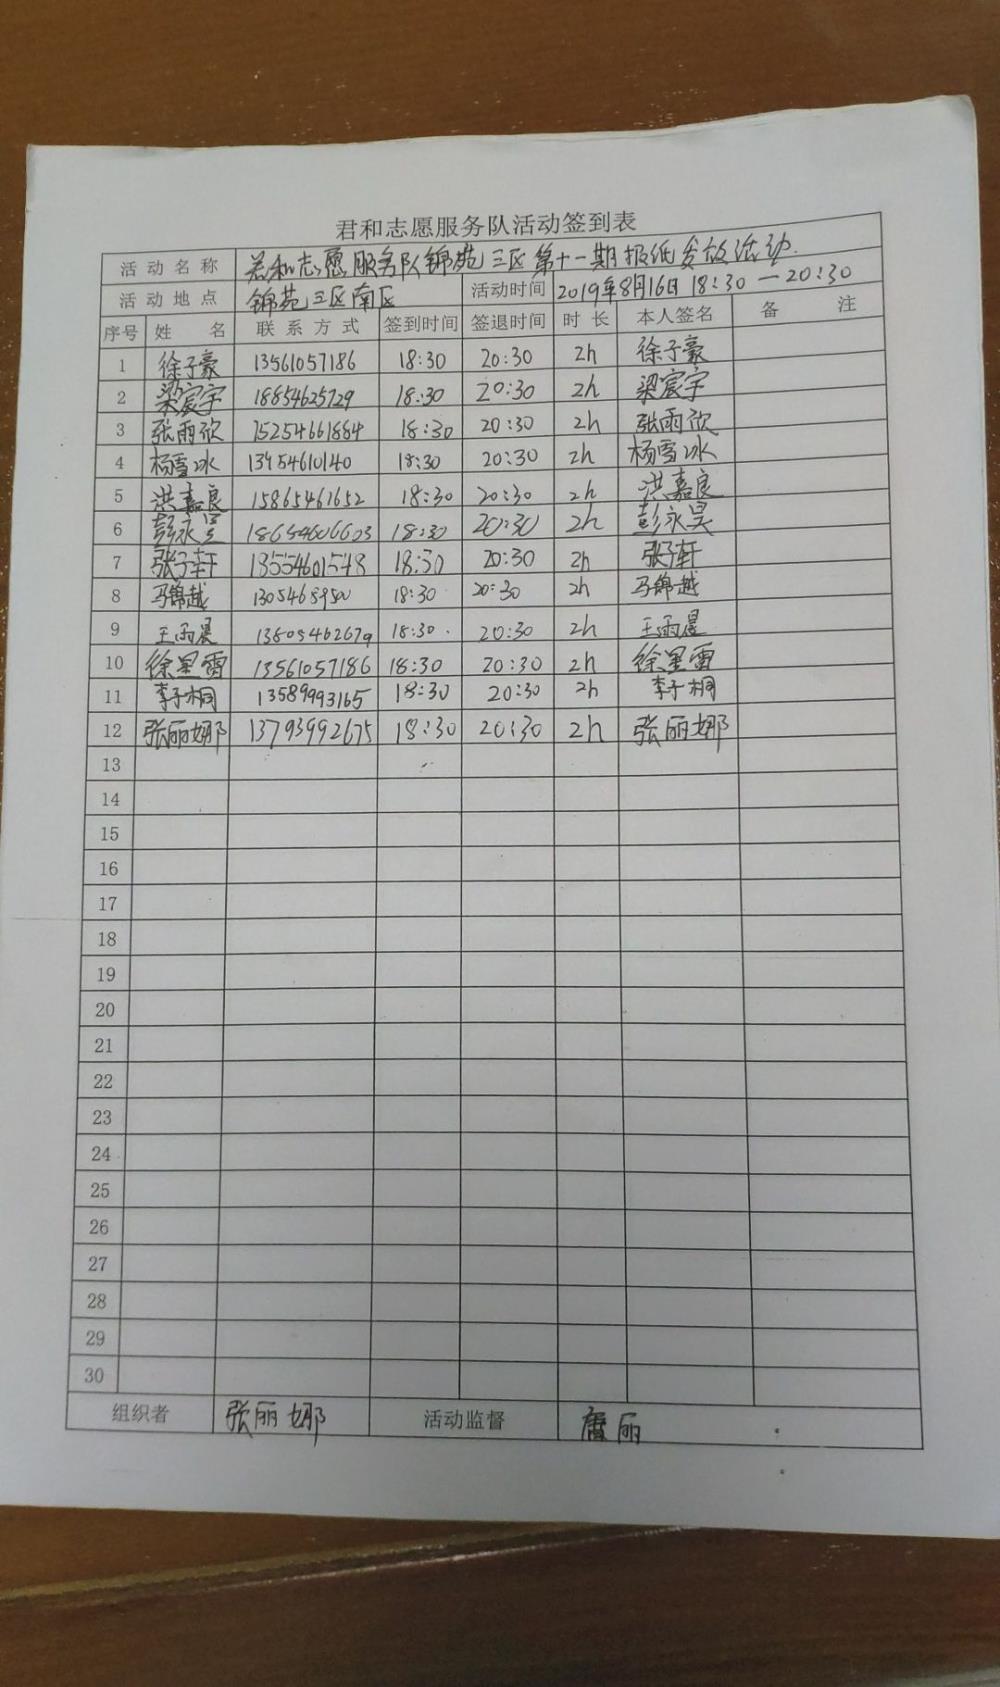 君和志愿服务队活动签到表
活动名称 君和志愿服务队锦苑三区第十一期报纸发放活动.
活动地点 锦苑三区南区 活动时间 2019年8月16日 18:30—20:30
序号 姓名 联系方式 签到时间 签退时间 时长 本人签名 备注
1 徐子豪 13561057186 18:30 20:30 2h 徐子豪
2 梁宸宇 18854625729 18:30 20:30 2h 梁宸宇
3 张雨欣 15254661884 18:30 20:30 2h 张雨欣
4 杨雪冰 13454610140 18:30 20:30 2h 杨雪冰
5 洪嘉良 15865461652 18:30 20:30 2h 洪嘉良
6 彭永昊 18:30 20:30 2h 彭永昊
7 张子轩 18554601548 18:30 20:30 2h 张子轩
8 马锦越 18:30 20:30 2h 马锦越
9 王雨晨 18:30 20:30 2h 王雨晨
10 徐墨雷 13561057186 18:30 20:30 2h 徐墨雷
11 李子桐 13589993165 18:30 20:30 2h 李子桐
12 张丽娜 13793992675 18:30 20:30 2h 张丽娜
13
14
15
16
17
18
19
20
21
22
23
24
25
26
27
28
29
30
组织者 张丽娜 活动监督 唐丽